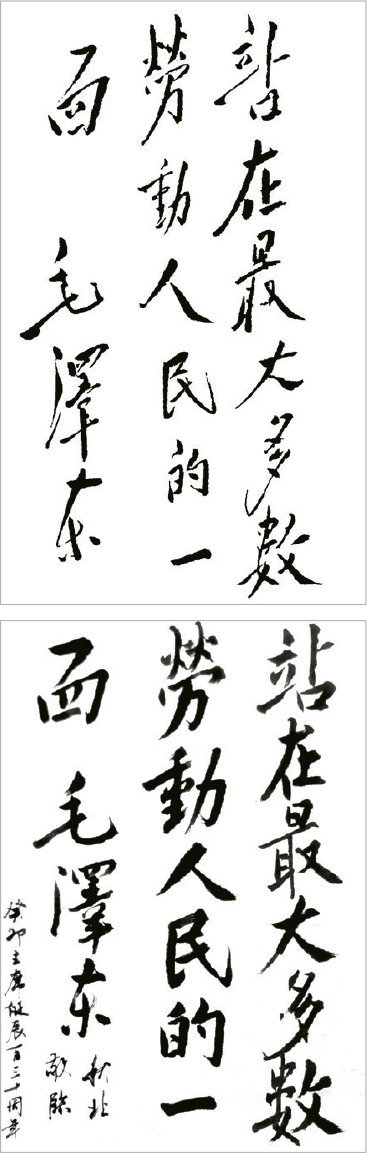 站在最大多數
勞動人民的一
面 毛澤东
站在最大多數
勞動人民的一
面 毛澤东
癸卯主席誕辰百三十周年
秋北
敬臨